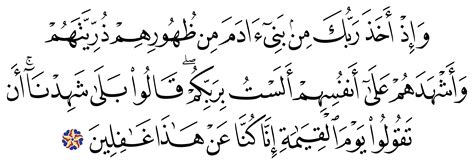 وَإِذْ أَخَذَ رَبُّكَ مِنۢ بَنِىٓ ءَادَمَ مِن ظُهُورِهِمْ ذُرِّيَّتَهُمْ
وَأَشْهَدَهُمْ عَلَىٰٓ أَنفُسِهِمْ أَلَسْتُ بِرَبِّكُمْ ۖ قَالُوا۟ بَلَىٰ شَهِدْنَآ ۛ أَن
تَقُولُوا۟ يَوْمَ ٱلْقِيَـٰمَةِ إِنَّا كُنَّا عَنْ هَـٰذَا غَـٰفِلِينَ